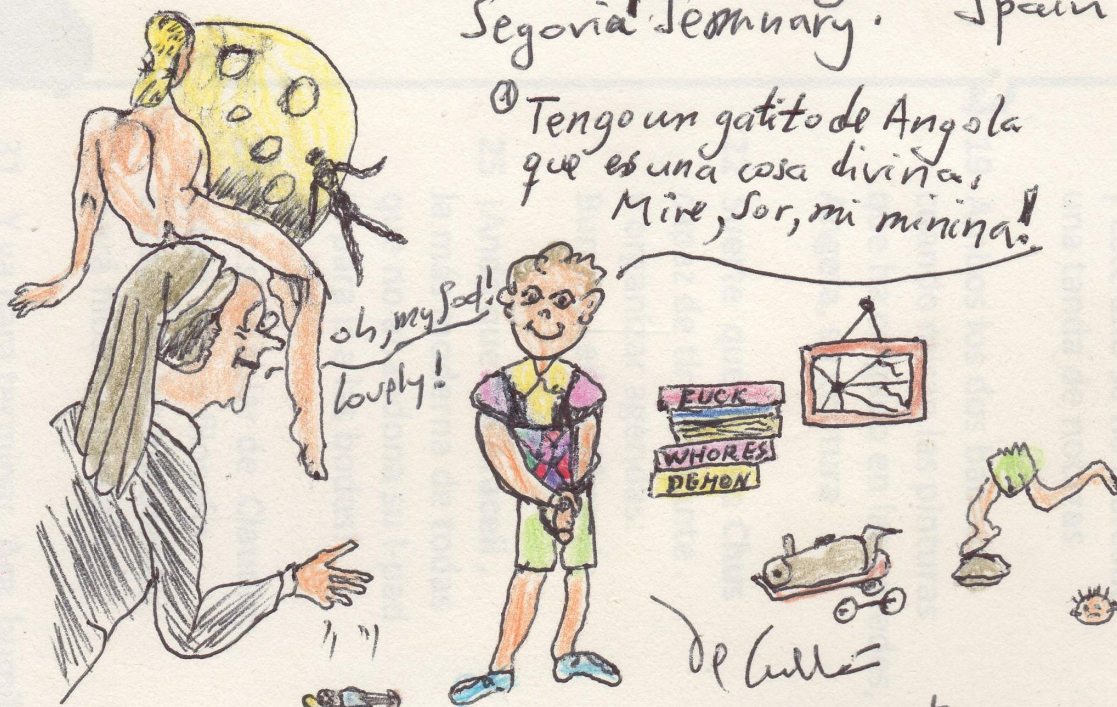 Segovia Seminary. Spain
① Tengo un gatito de Angola
que es una cosa divina,
Mire, Sor, mi minina!
oh, my God!
Lovely!
FUCK
WHORES
DEMON